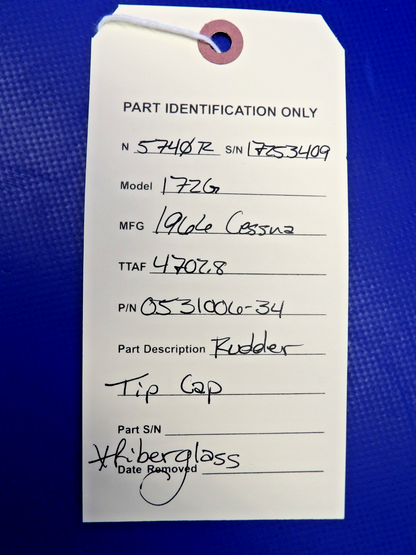 PART IDENTIFICATION ONLY
N 5740R S/N 17253409
Model 172G
MFG 1966 Cessna
TTAF 4702.8
P/N 0531006-34
Part Description Rudder
Tip Cap
Part S/N
*fiberglass
Date Removed